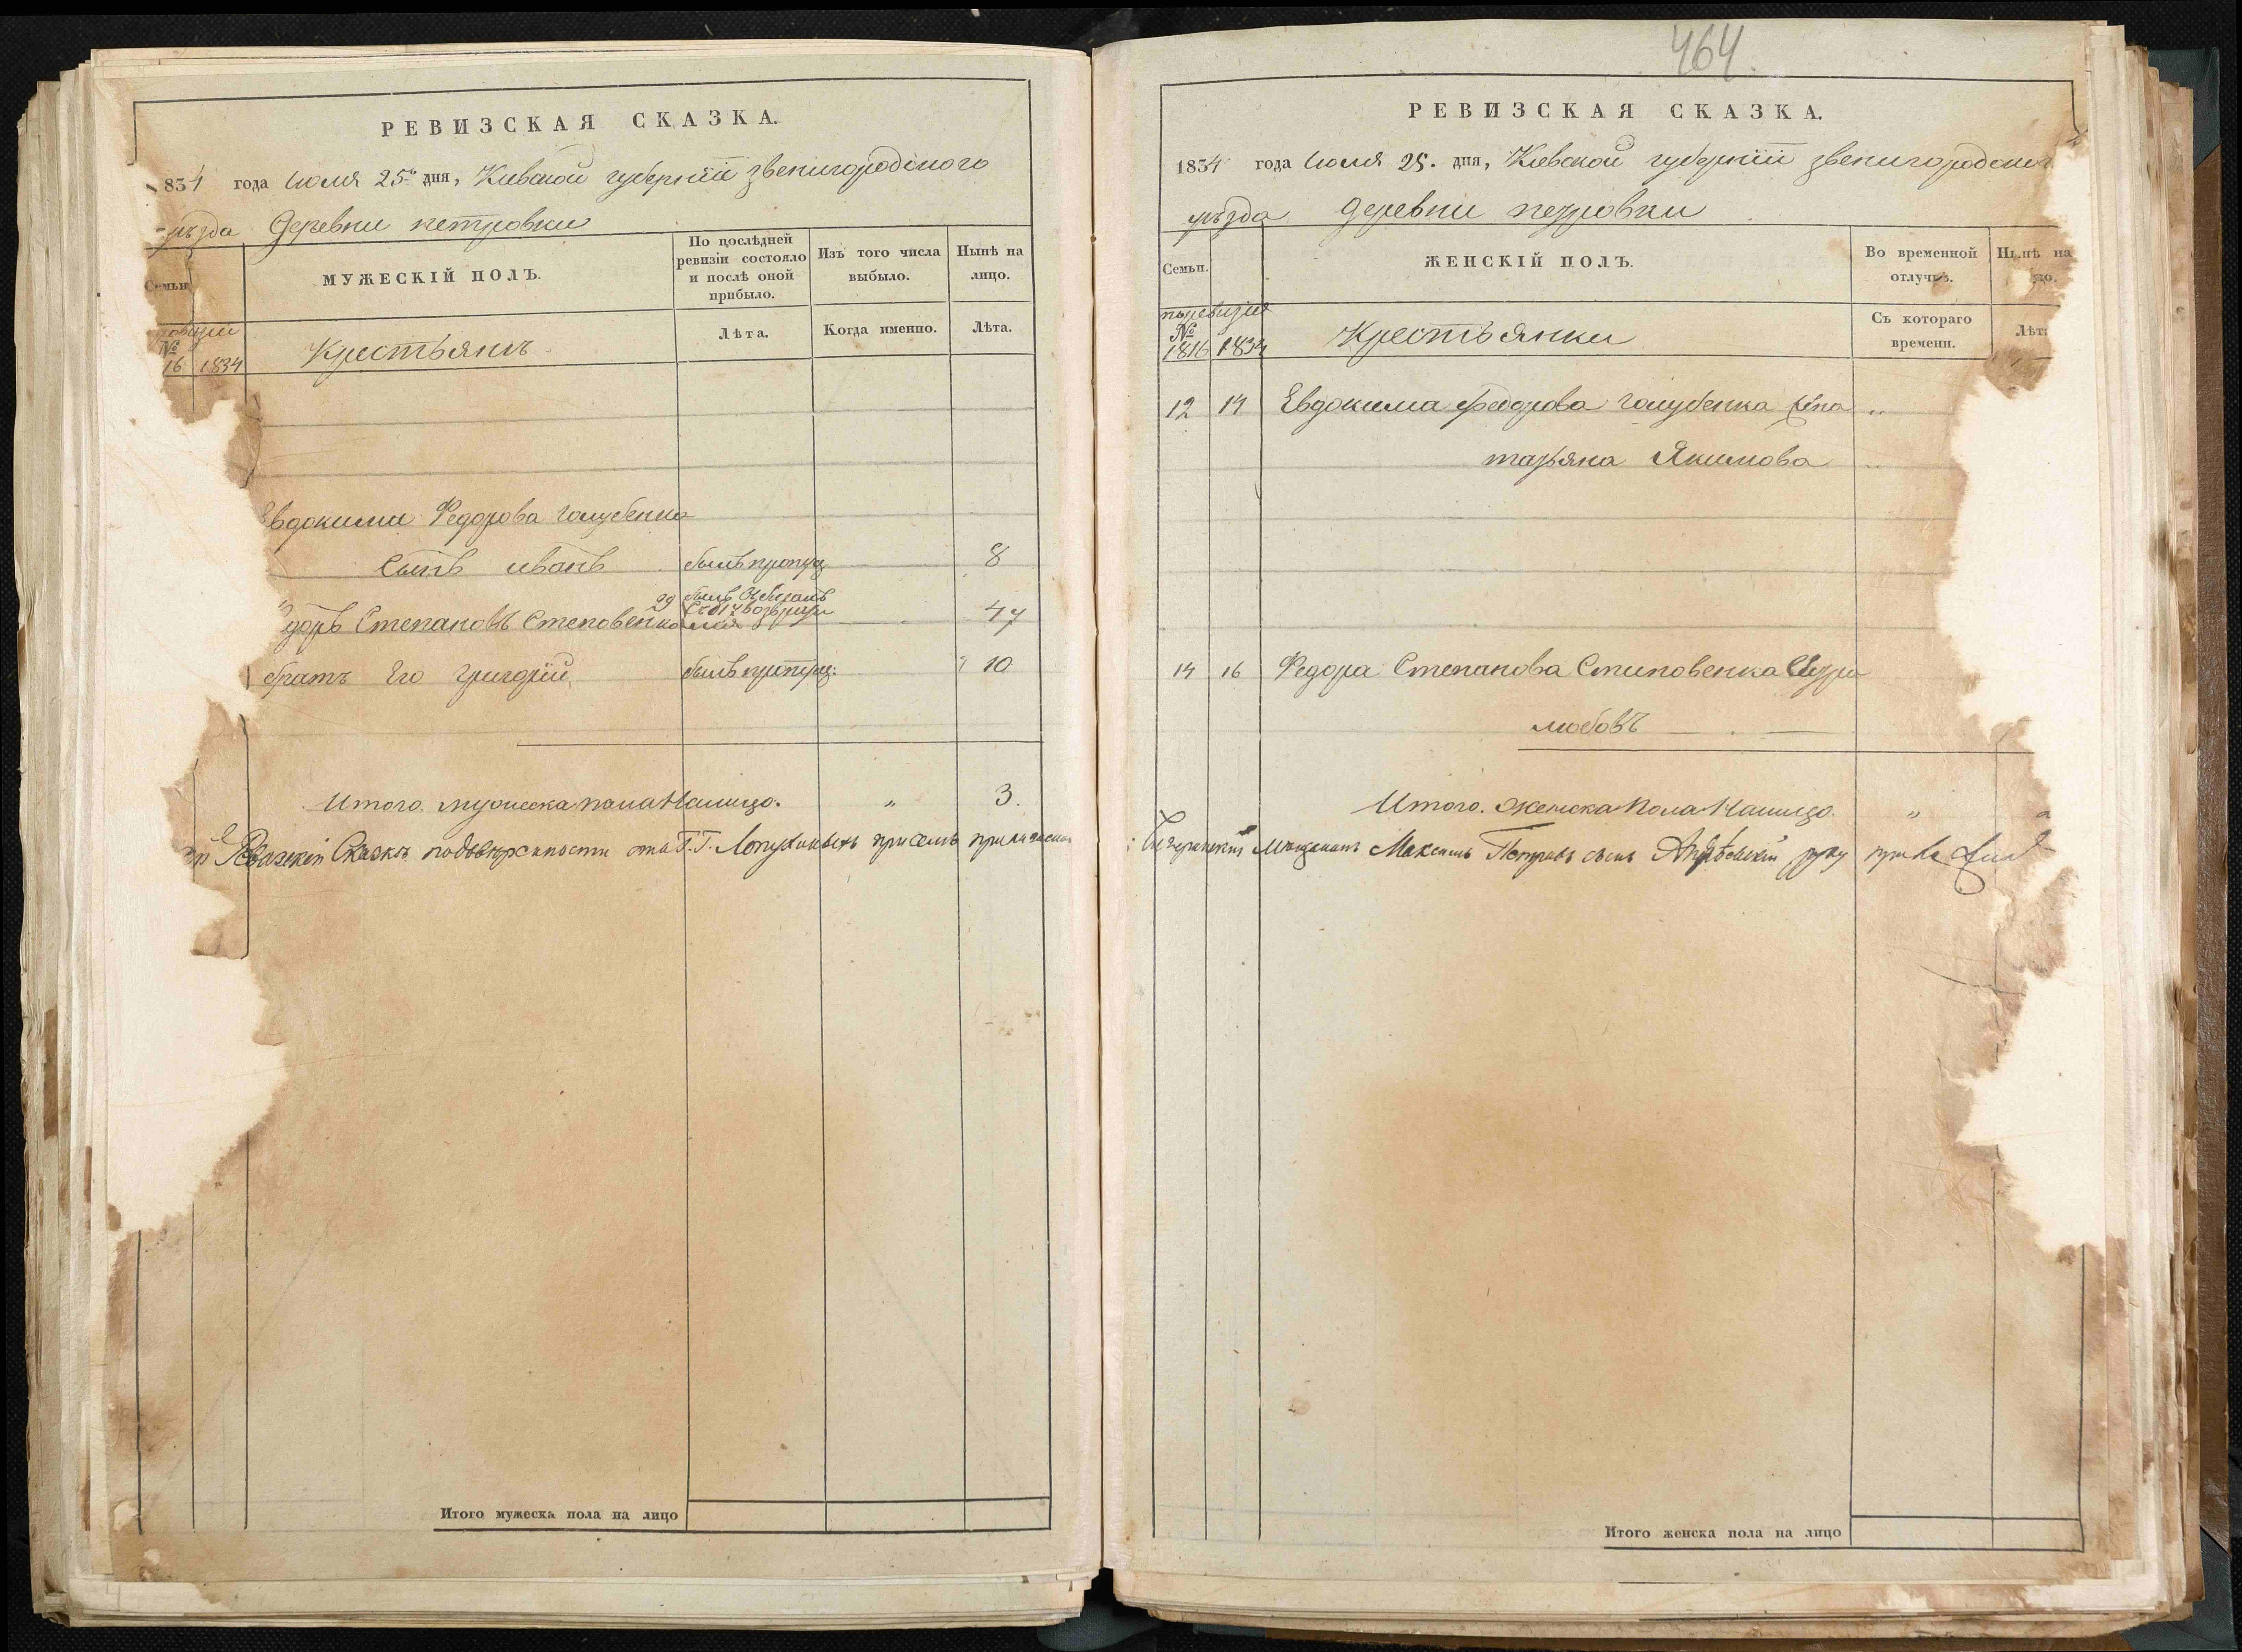 РЕВИЗСКАЯ СКАЗКА.
834 года Июля 25го дня, Киевской губернїи звенигородского
уѣзда деревни петровки
МУЖЕСКІЙ ПОЛЪ.
По послѣдней ревизіи состояло и послѣ оной прибыло.
Изъ того числа выбыло.
Нынѣ на лицо.
Семьи
№
16 1834
Крестьянъ
Лѣта.
Когда именно.
Лѣта.
Евдокима Федорова голубенка
Сынъ иванъ былъ пропущ 8
доръ Степановъ Степовенко 29 былъ 47
братъ Его григорїй былъ пропущ. 10
Итого. мужеска пола Налицо. " 3.
Ревизской Сказкѣ по довѣренности отъ Г.Г. Лопухиныхъ
Итого мужеска пола на лицо
464.
РЕВИЗСКАЯ СКАЗКА.
1834 года Июля 25. дня, Киевской губернїи звенигородског
уѣзда деревни петровки
Семьи.
ЖЕНСКІЙ ПОЛЪ.
Во временной отлучкѣ.
Нынѣ на
по ревизия
№
1816 1834
Крестьянки
Съ котораго времени.
Лѣт
12 14 Евдокима Федорова голубенка жена "
татьяна Якимова "
14 16 Федора Степанова Степовенка
любовь
Итого. женска Пола Налицо. "
мещанинъ Максимъ Петровъ сынъ руку
Итого женска пола на лицо